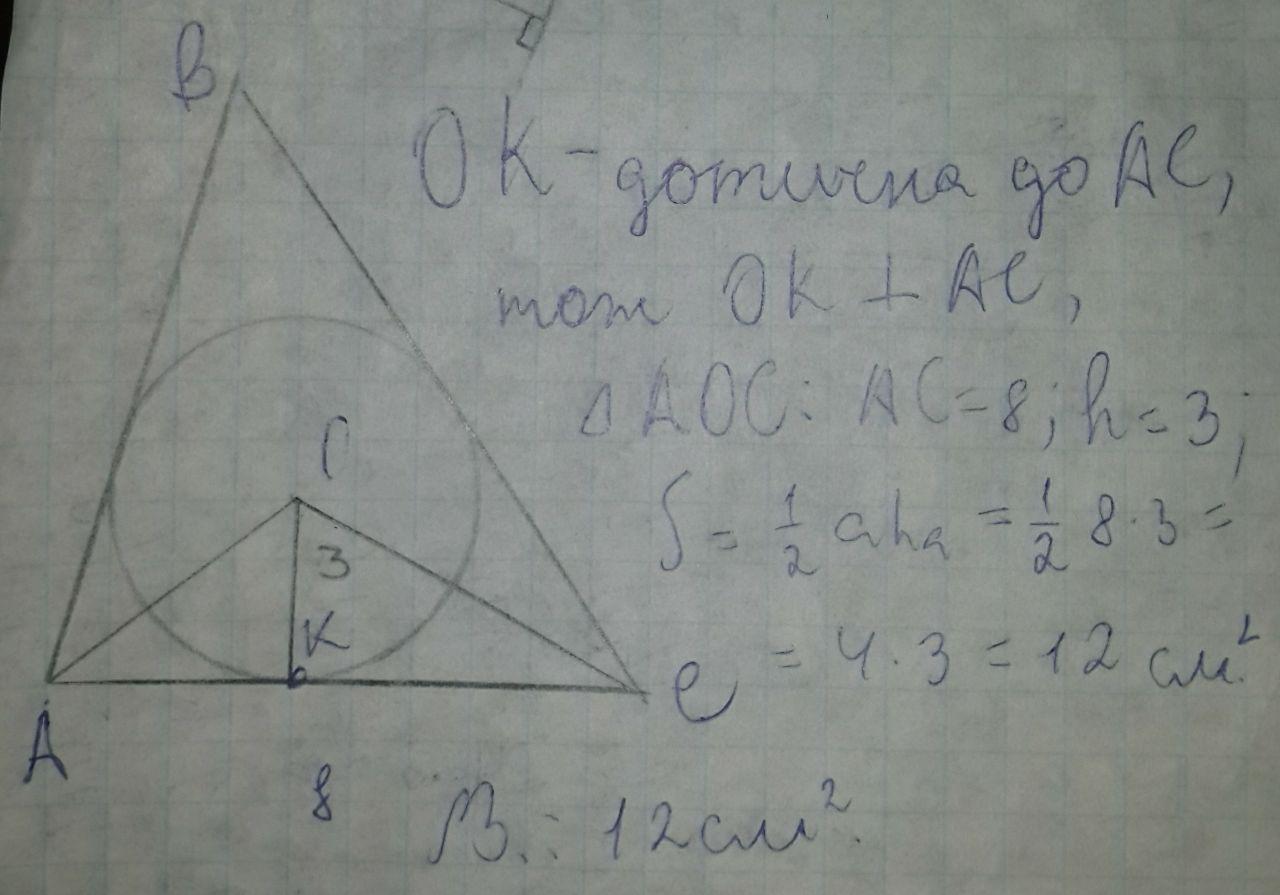 B
OK - дотична до AC,
тож OK ⊥ AC,
Δ AOC: AC = 8; h = 3;
S = 1/2 aha = 1/2 8 · 3 =
3
K
= 4 · 3 = 12 см².
C
A
8
В.: 12 см².